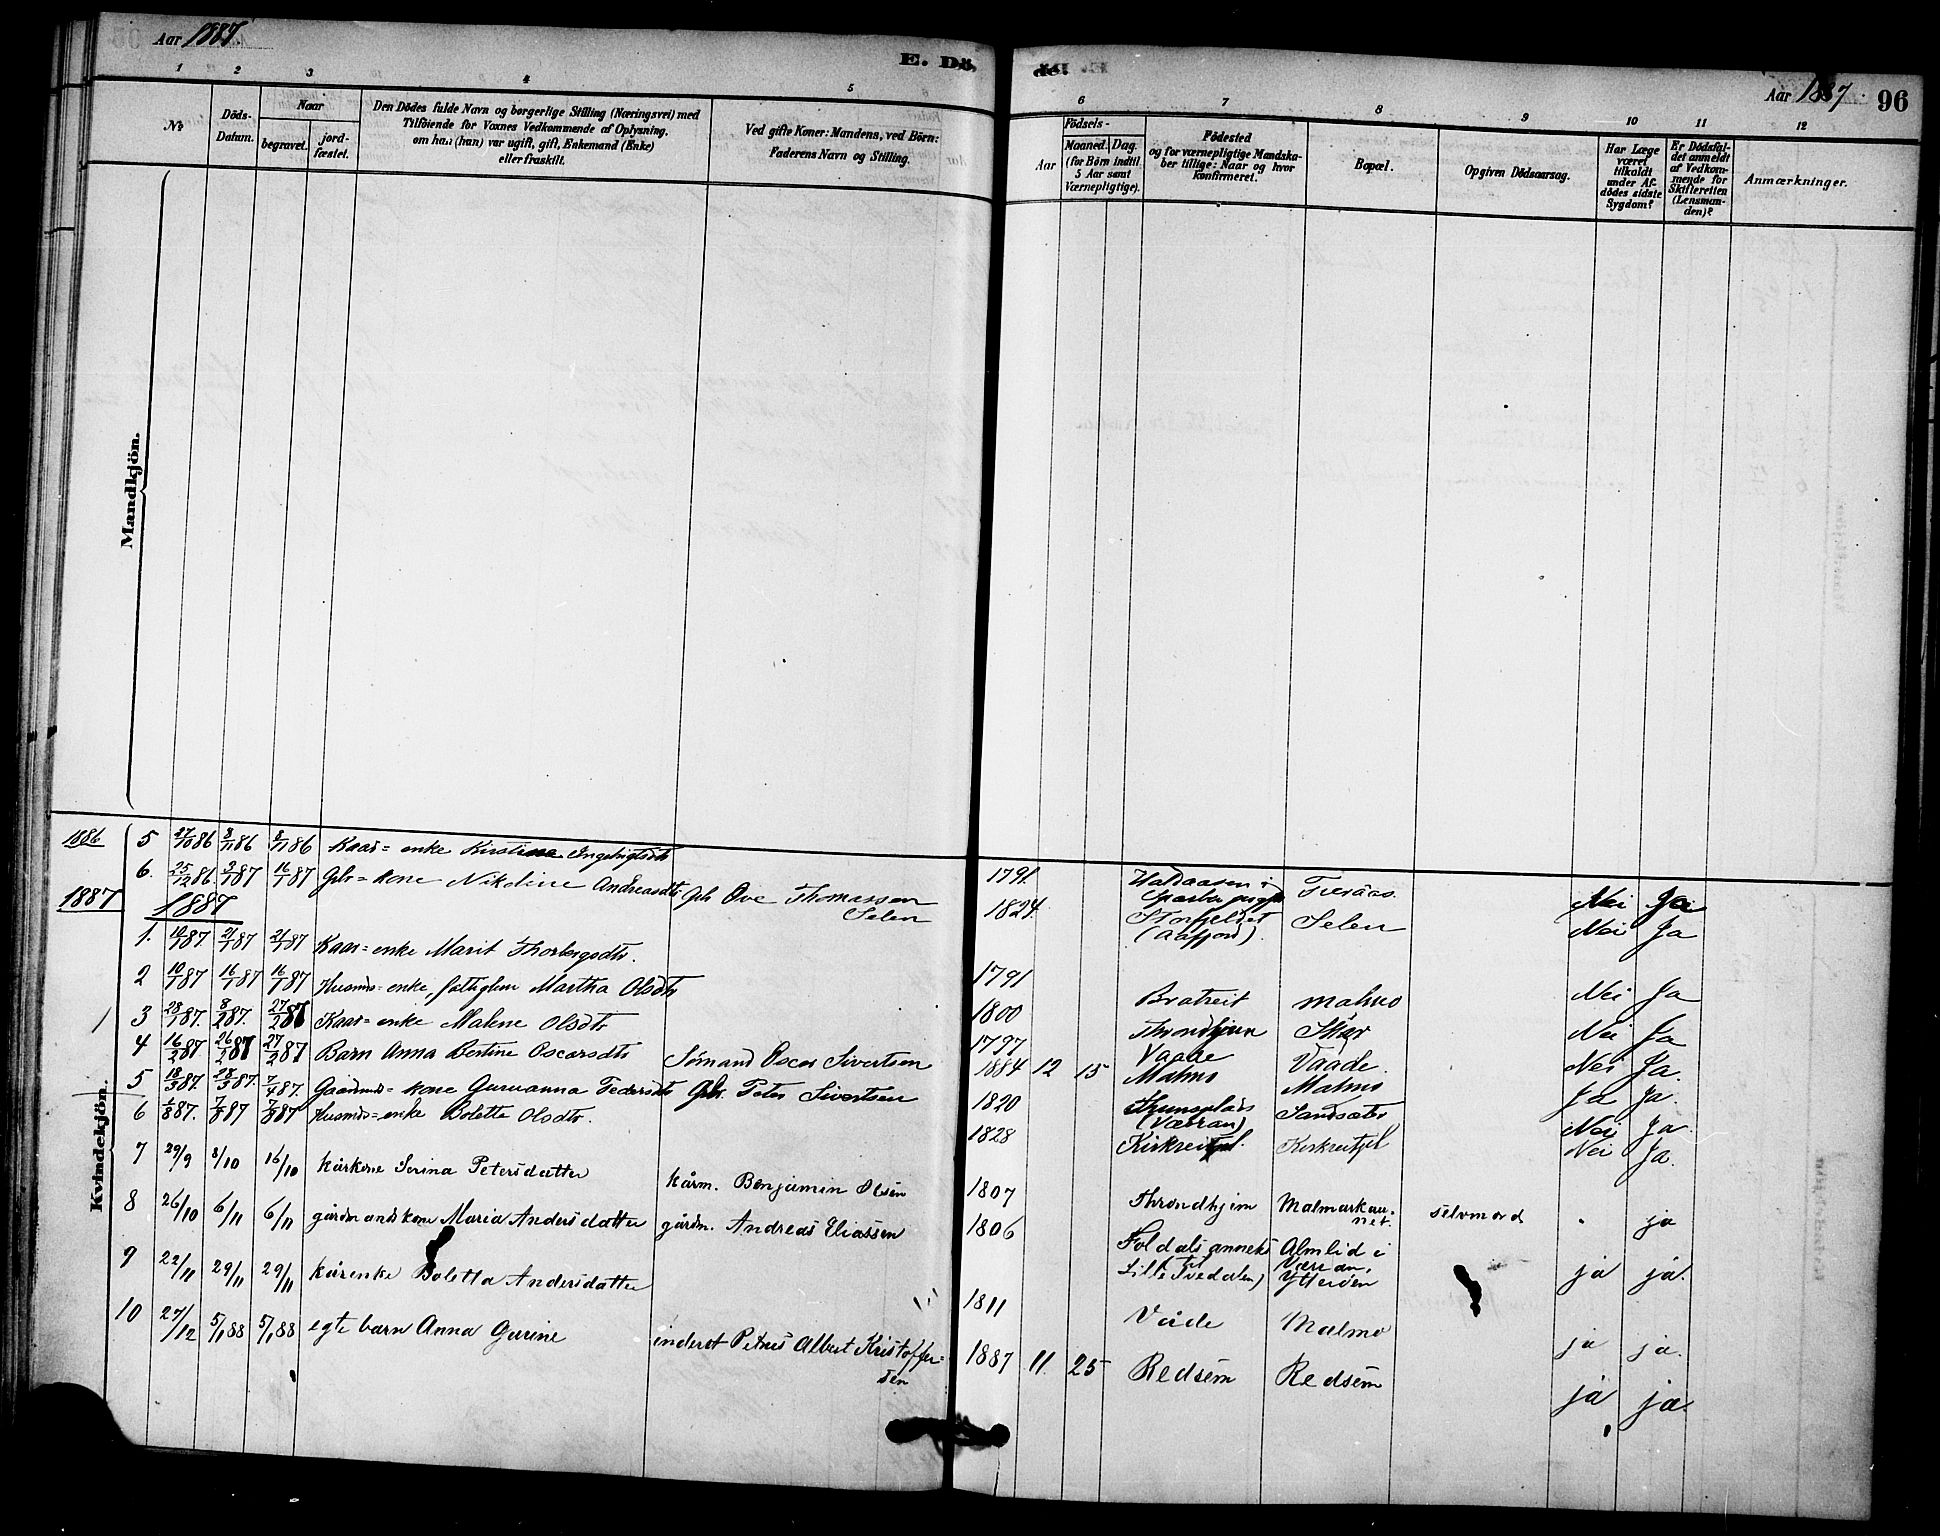 Aar 1887.
E. Dö-
1 2 3 4 5
No
Döds-
Datum.
Naar
begravet.
jord-
fæstet.
Den Dödes fulde Navn og borgerlige Stilling (Næringsvei) med
Tilföiende for Voxnes Vedkommende af Oplysning,
om hun (han) var ugift, gift, Enkemand (Enke)
eller fraskilt.
Ved gifte Koner: Mandens, ved Börn:
Faderens Navn og Stilling.
Mandkjön.
1886 5 27/10 86 8/11 86 8/11 86 Kaar= enke Kirstine Ingebrigtsdtr
6. 25/12 86. 2/1 87 16/1 87 Gbr= kone Nikoline Andreasdtr. Gbr Ove Thomassen
Selen
1887
1887
1. 10/1 87 21/1 87 21/1 87 Kaar= enke Marit Thorbergsdtr.
2 10/1 87 16/1 87 16/1 87 Husmds= enke, fattiglem Martha Olsdtr
3 28/1 87. 8/2 87. 27/2 87 Kaar= enke Malene Olsdtr
4 16/2 87 26/2 87 27/2 87 Barn Anna Bertine Oscarsdtr Sømand Oscar Sivertsen
5 18/3 87. 28/3 87. 7/4 87. Gaardmds= kone Guruanna Pedersdtr Gbr. Peter Sivertsen
Kvindekjön.
6 1/8 87. 7/8 87 7/8 87 Husmds= enke Bolette Olsdtr.
7 29/9 8/10 16/10 kårkone Serina Petersdatter kårm. Benjamin Olsen
8 26/10 6/11 6/11 gårdmandskone Maria Andersdatter gårdm. Andreas Eliassen
9 22/11 29/11 29/11 kårenke Boletta Andersdatter
10 27/12 5/1 88 5/1 88 egte barn Anna Gurine inderst Petrus Albert Kristoffer=
sen
de.
Aar 1887.
96
6 7 8 9 10 11 12
Födsels-
Aar
Maaned. Dag.
(for Börn indtil
5 Aar samt
Værnepligtige).
Födested
og for værnepligtige Mandska-
ber tillige: Naar og hvor
konfirmeret.
Bopæl.
Opgiven Dödsaarsag.
Har Læge
været
tilkaldt
under Af-
dödes sidste
Sygdom?
Er Dödsfal-
det anmeldt
af Vedkom-
mende for
Skifteretten
(Lensman-
den)?
Anmærkninger.
1791. Haldaasen i Nei Ja
1824 Storfjeldet Selen Nei Ja
(Aafjord).
1791 Bratreit Malmo Nei Ja
1800 Throndhjem Skjær Nei Ja
1797 Vaade Vaade. Nei Ja.
1884 12 15 Malmo Malmo Ja Ja.
1820 Sandsæter Nei Ja.
(Værran)
1828 Nei Ja.
1807 Throndhjem Malmarkau= selvmord " ja
net.
1806 Foldals anneks Almlid i ja ja.
Værran,
Ytterøen
1811 Våde Malmo ja ja.
1887 11 25 Redsem Redsem ja ja.